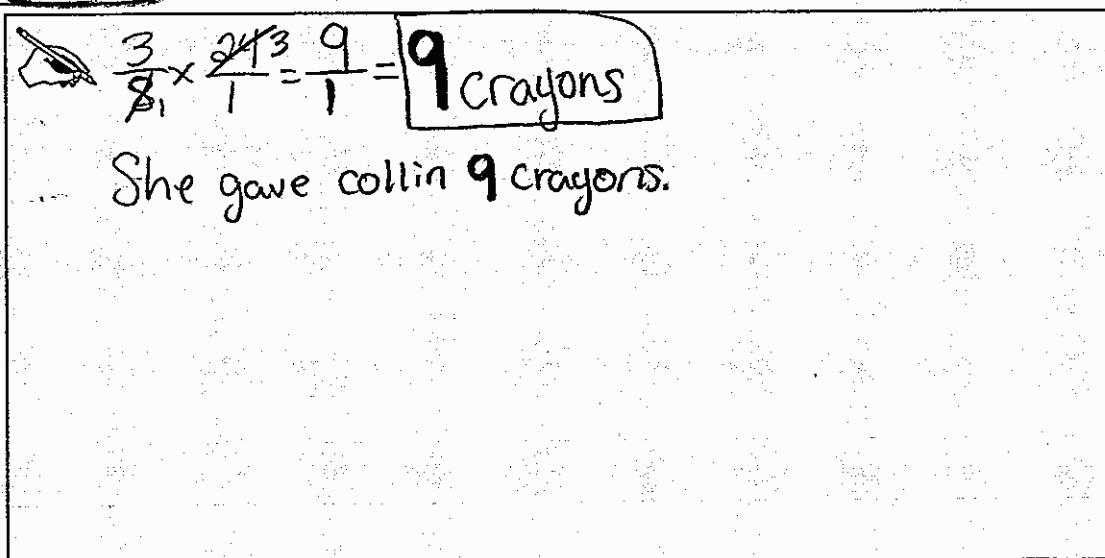 3/8 1 × 24/1 3 = 9/1 = 9 crayons
She gave collin 9 crayons.